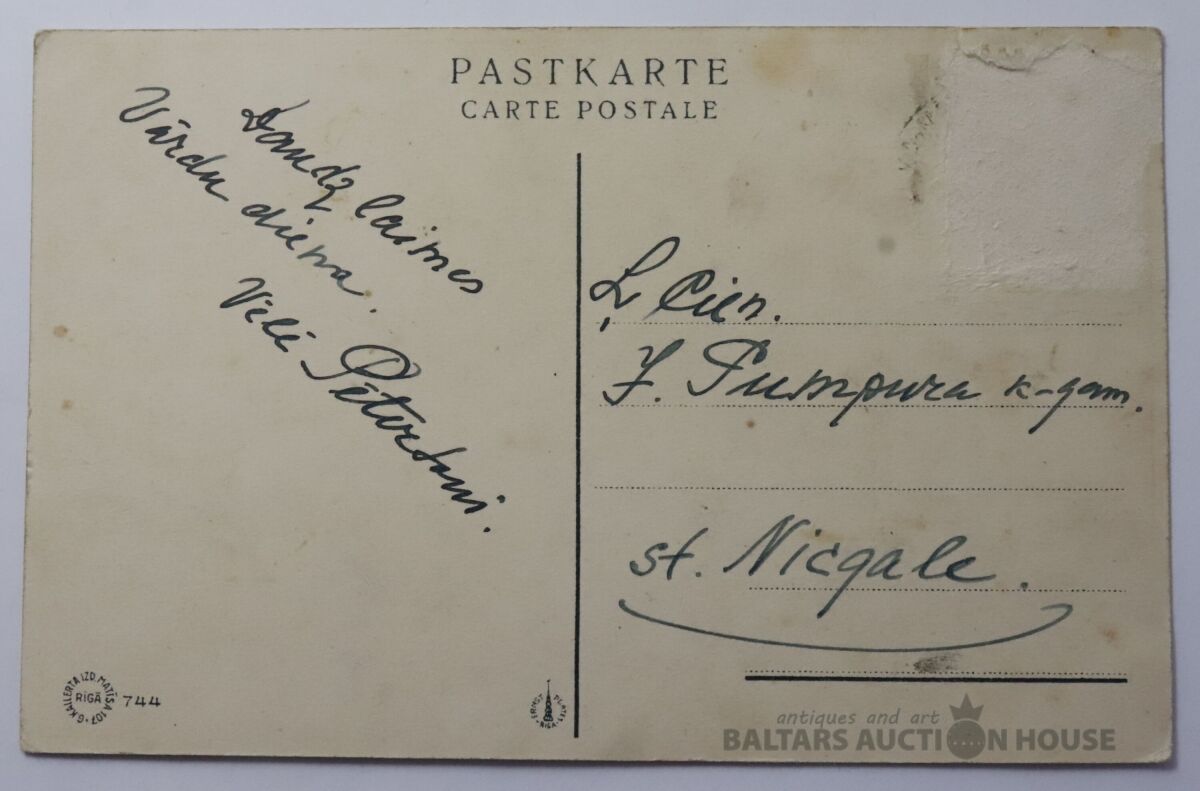 PASTKARTE
CARTE POSTALE
Daudz laimes
Vārdu diena.
Vēlē Pētersoni.
Ļ. Cien.
J. Pumpura k-gam.
st. Nīcgale.
G. KALLERTA IZD. MATĪSA 107
RĪGĀ
744
ERNST PLATES
antiques and art
BALTARS AUCTION HOUSE